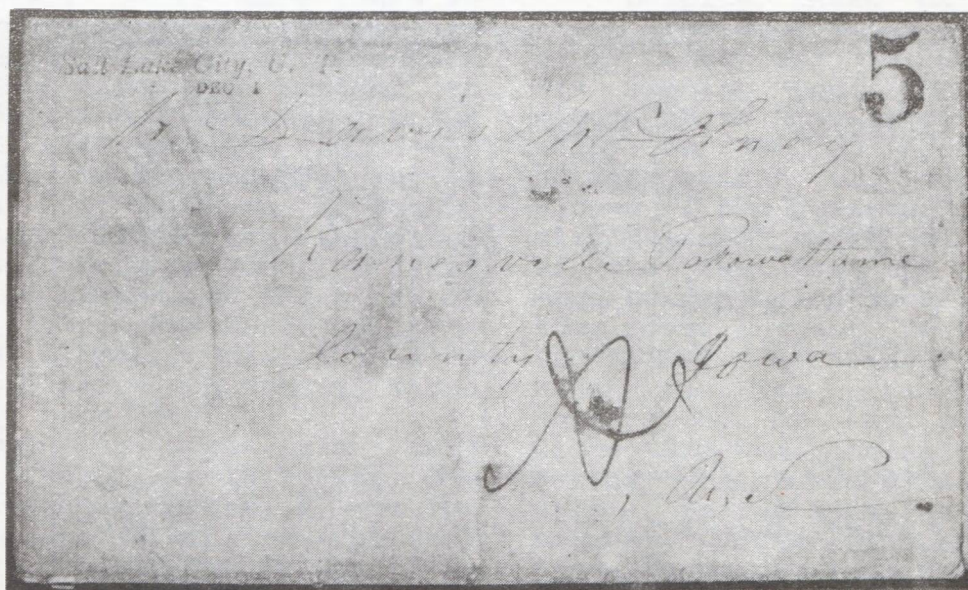 Salt Lake City, U. T.
5
DEC 1
Davis
Kanesville Potowattame
County Iowa